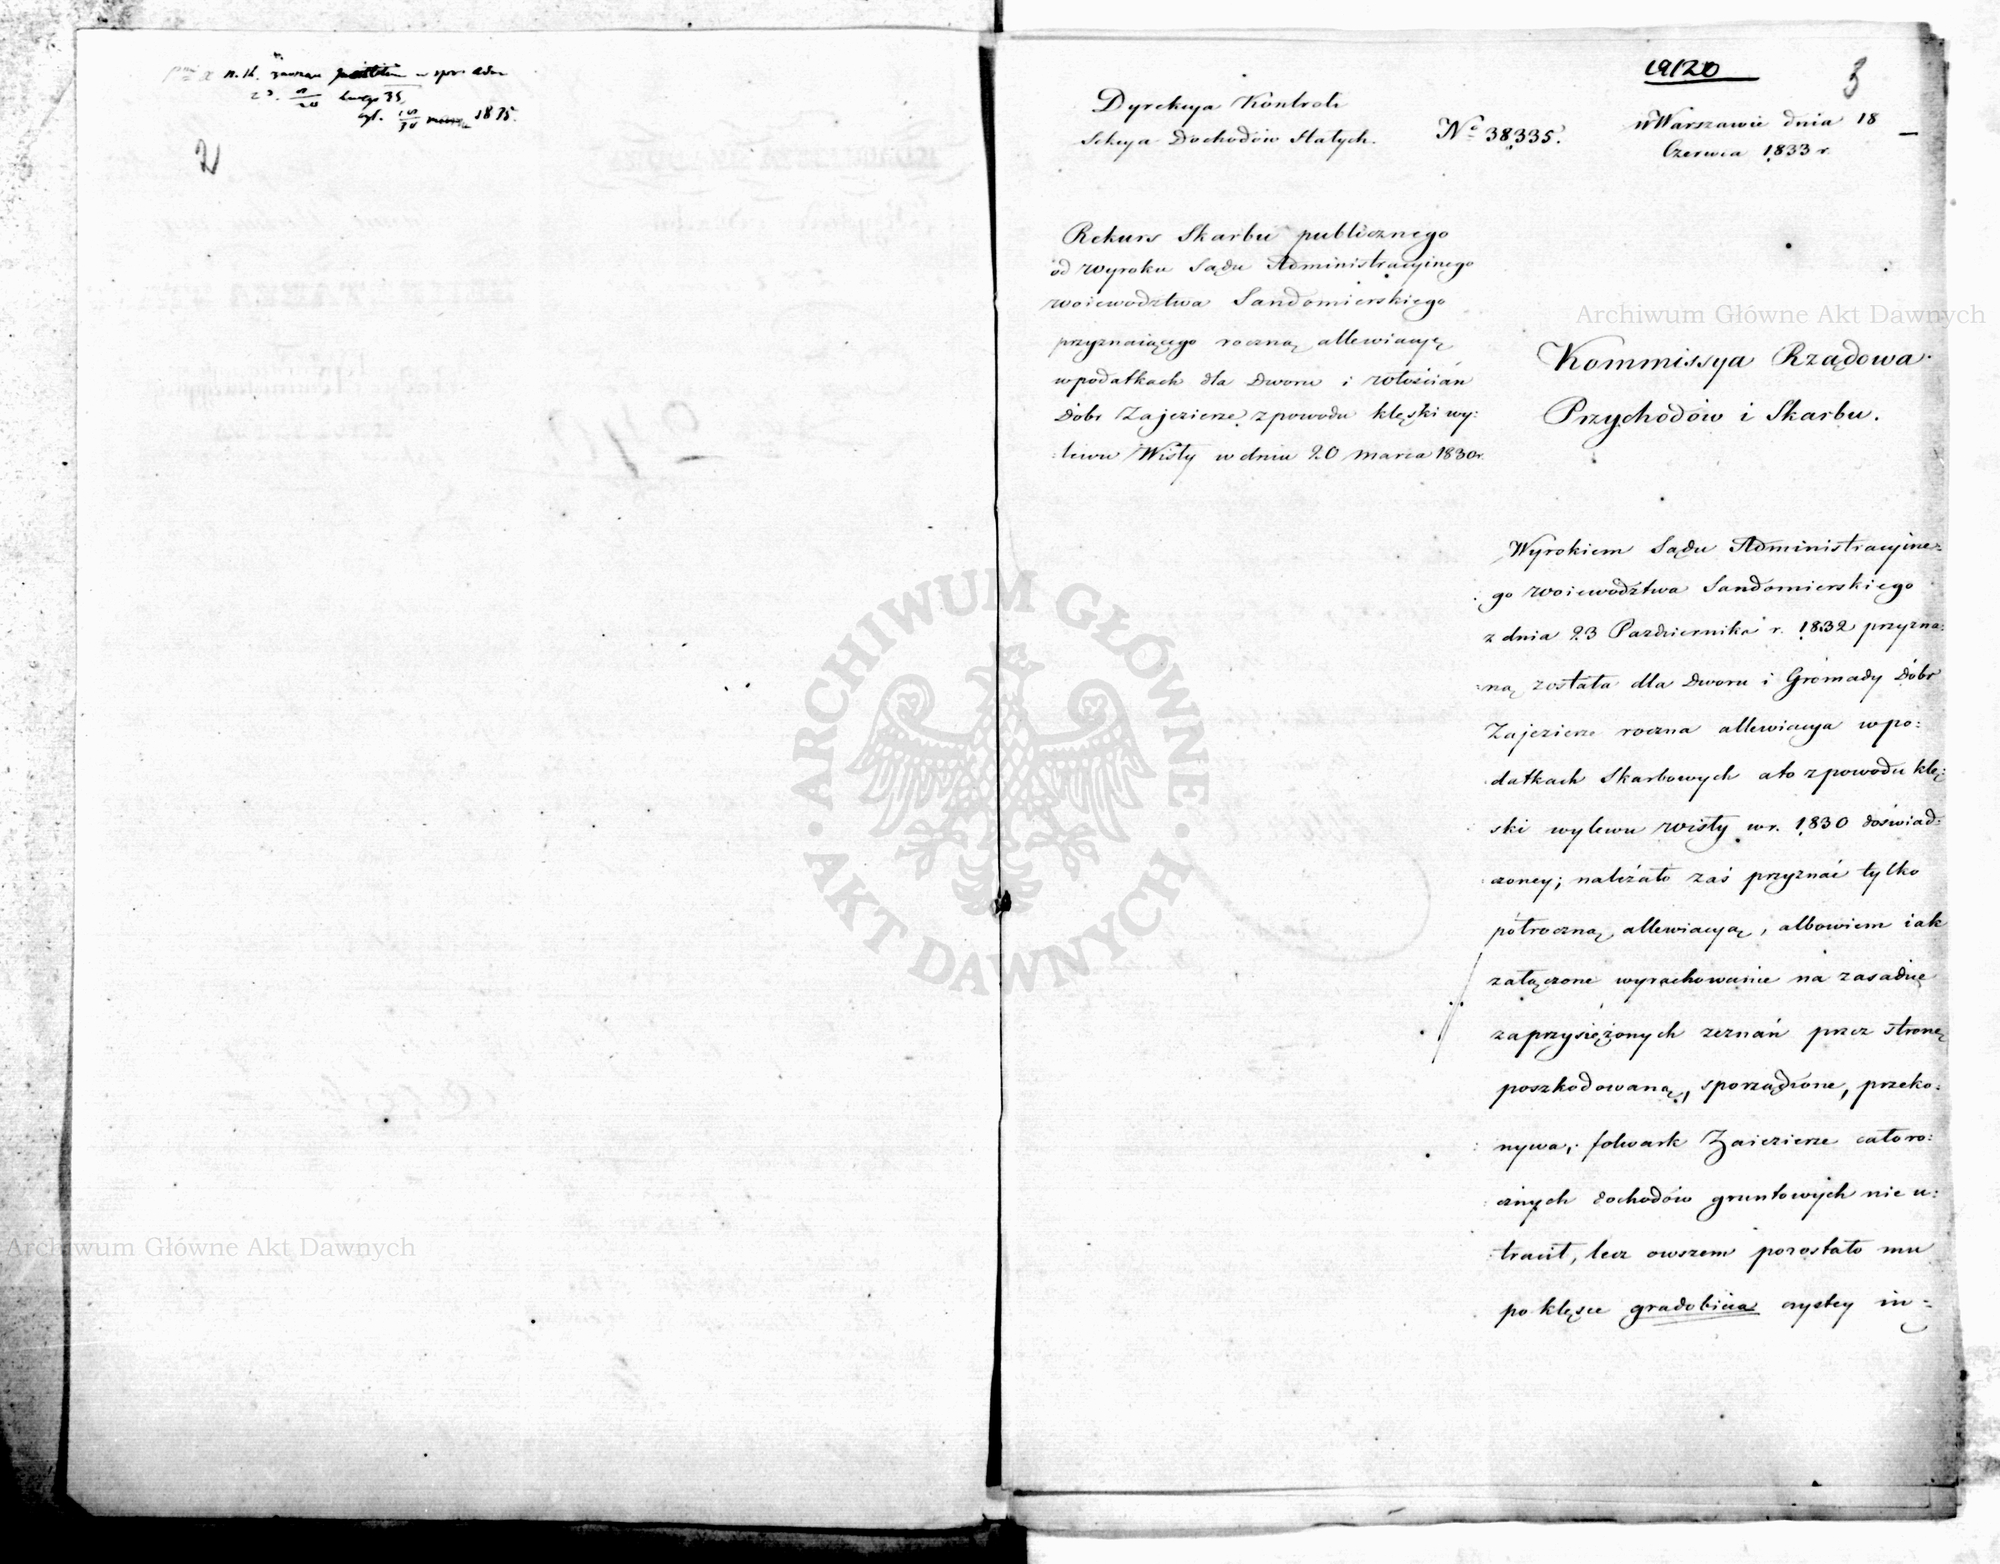 2
19120
3
Dyrekcya Kontroli
Sekcya Dochodów Stałych.
No 38,335.
w Warszawie dnia 18
Czerwca 1833 r.
Rekurs Skarbu publicznego
od wyroku Sądu Administracyinego
woiewodztwa Sandomierskiego
przyznaiącego roczną allewiacyę
w podatkach dla Dworu i włościan
Dobr Zajezierze, z powodu klęski wy:
:lewu Wisły w dniu 20 marca 1830 r.
Kommissya Rządowa
Przychodów i Skarbu.
Wyrokiem Sądu Administracyine:
go woiewodztwa Sandomierskiego
z dnia 23 Pazdziernika r. 1832 przyzna:
:ną została dla Dworu i Gromady Dóbr
Zajezierze roczna allewiacya w po:
datkach Skarbowych a to z powodu klę:
ski wylewu wisły w r. 1830 doświad:
czoney; należało zaś przyznać tylko
półroczną allewiacyą, albowiem iak
załączone wyrachowanie na zasadzie
zaprzysiężonych zeznań przez stronę
poszkodowaną, sporządzone, przeko:
nywa, folwark Zaiezierze całoro:
cznych dochodów gruntowych nie u:
tracił, lecz owszem pozostało mu
po klęsce gradobicia czystey in:
Archiwum Główne Akt Dawnych
Archiwum Główne Akt Dawnych
ARCHIWUM GŁÓWNE
AKT DAWNYCH